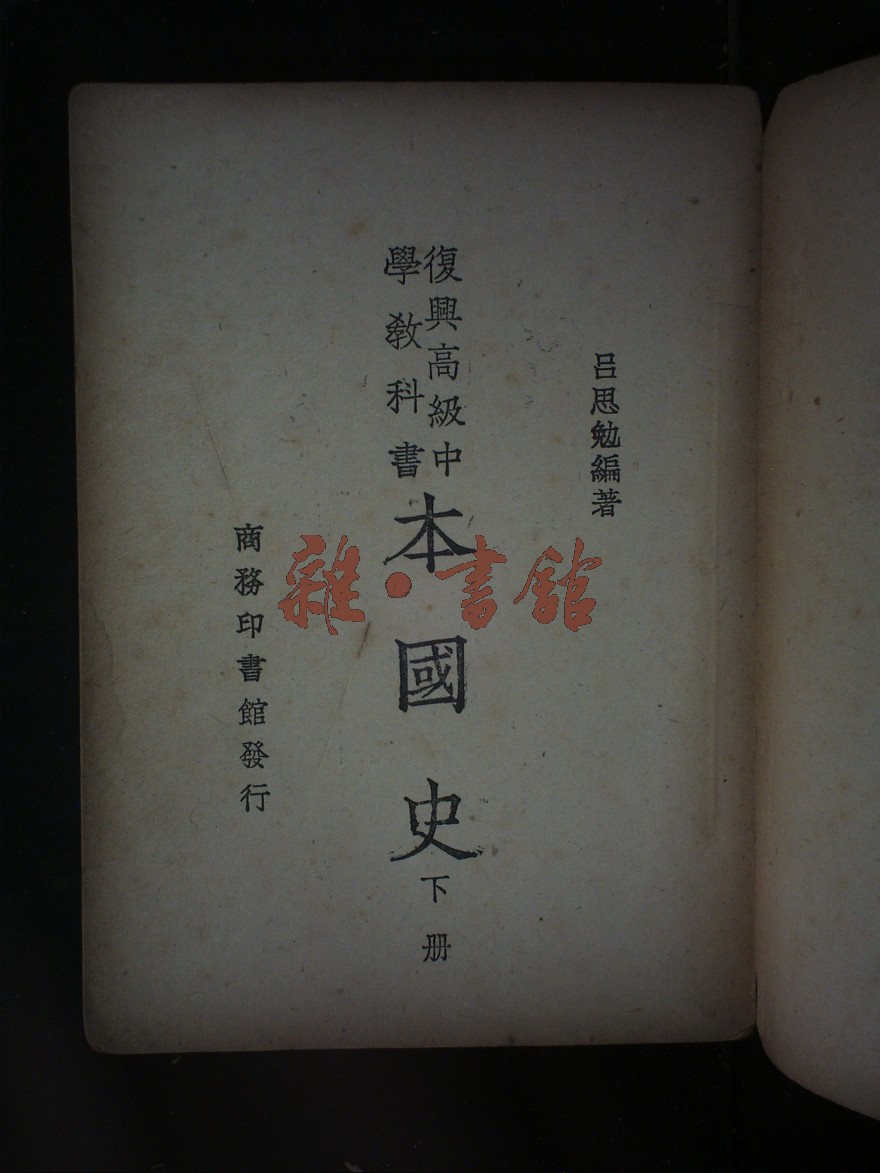 呂思勉編著
復興高級中
學教科書
本國史
下册
商務印書館發行
雜·書館